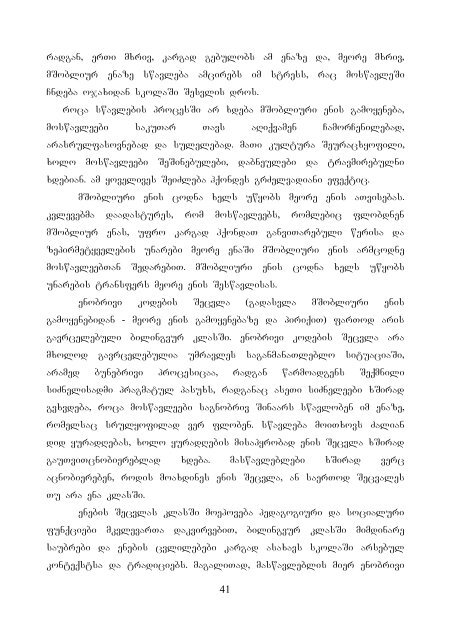 რადგან, ერთი მხრივ, კარგად გებულობს ამ ენაზე და, მეორე მხრივ,
მშობლიურ ენაზე სწავლება ამცირებს იმ სტრესს, რაც მოსწავლეში
ჩნდება ოჯახიდან სკოლაში შესვლის დროს.
როცა სწავლების პროცესში არ ხდება მშობლიური ენის გამოყენება,
მოსწავლეები საკუთარ თავს აღიქვამენ ჩამორჩენილებად,
არასრულფასოვნებად და სულელებად. მათი კულტურა შეურაცხყოფილი,
ხოლო მოსწავლეები შეშინებულები, დაბნეულები და ტრავმირებულნი
ხდებიან. ამ ყოველივეს შეიძლება ჰქონდეს გრძელვადიანი ეფექტიც.
მშობლიური ენის ცოდნა ხელს უწყობს მეორე ენის ათვისებას.
კვლევებმა დაადასტურეს, რომ მოსწავლეებს, რომლებიც ფლობდნენ
მშობლიურ ენას, უფრო კარგად ჰქონდათ განვითარებული წერისა და
ზეპირმეტყველების უნარები მეორე ენაში მშობლიური ენის არმცოდნე
მოსწავლეებთან შედარებით. მშობლიური ენის ცოდნა ხელს უწყობს
უნარების ტრანსფერს მეორე ენის შესწავლისას.
ენობრივი კოდების შეცვლა (გადასვლა მშობლიური ენის
გამოყენებიდან - მეორე ენის გამოყენებაზე და პირიქით) ფართოდ არის
გავრცელებული ბილინგვურ კლასში. ენობრივი კოდების შეცვლა არა
მხოლოდ გავრცელებულია უმრავლეს საგანმანათლებლო სიტუაციაში,
არამედ ბუნებრივი პროცესიცაა, რადგან წარმოადგენს შექმნილი
სიძნელისადმი პრაგმატულ პასუხს, რადგანაც ასეთი სიძნელეები ხშირად
გვხვდება, როცა მოსწავლეები საგნობრივ შინაარს სწავლობენ იმ ენაზე,
რომელსაც სრულყოფილად ვერ ფლობენ. სწავლება მოითხოვს ძალიან
დიდ ყურადღებას, ხოლო ყურადღების მისაპყრობად ენის შეცვლა ხშირად
გაუთვითცნობიერებლად ხდება. მასწავლებლები ხშირად ვერც
აცნობიერებენ, როდის მოახდინეს ენის შეცვლა, ან საერთოდ შეცვალეს
თუ არა ენა კლასში.
ენების შეცვლას კლასში მოეპოვება პედაგოგიური და სოციალური
ფუნქციები მკვლევართა დაკვირვებით, ბილინგვურ კლასში მიმდინარე
საუბრები და ენების ცვლილებები კარგად ასახავს სკოლაში არსებულ
კონტექსტსა და ტრადიციებს. მაგალითად, მასწავლებლის მიერ ენობრივი
41